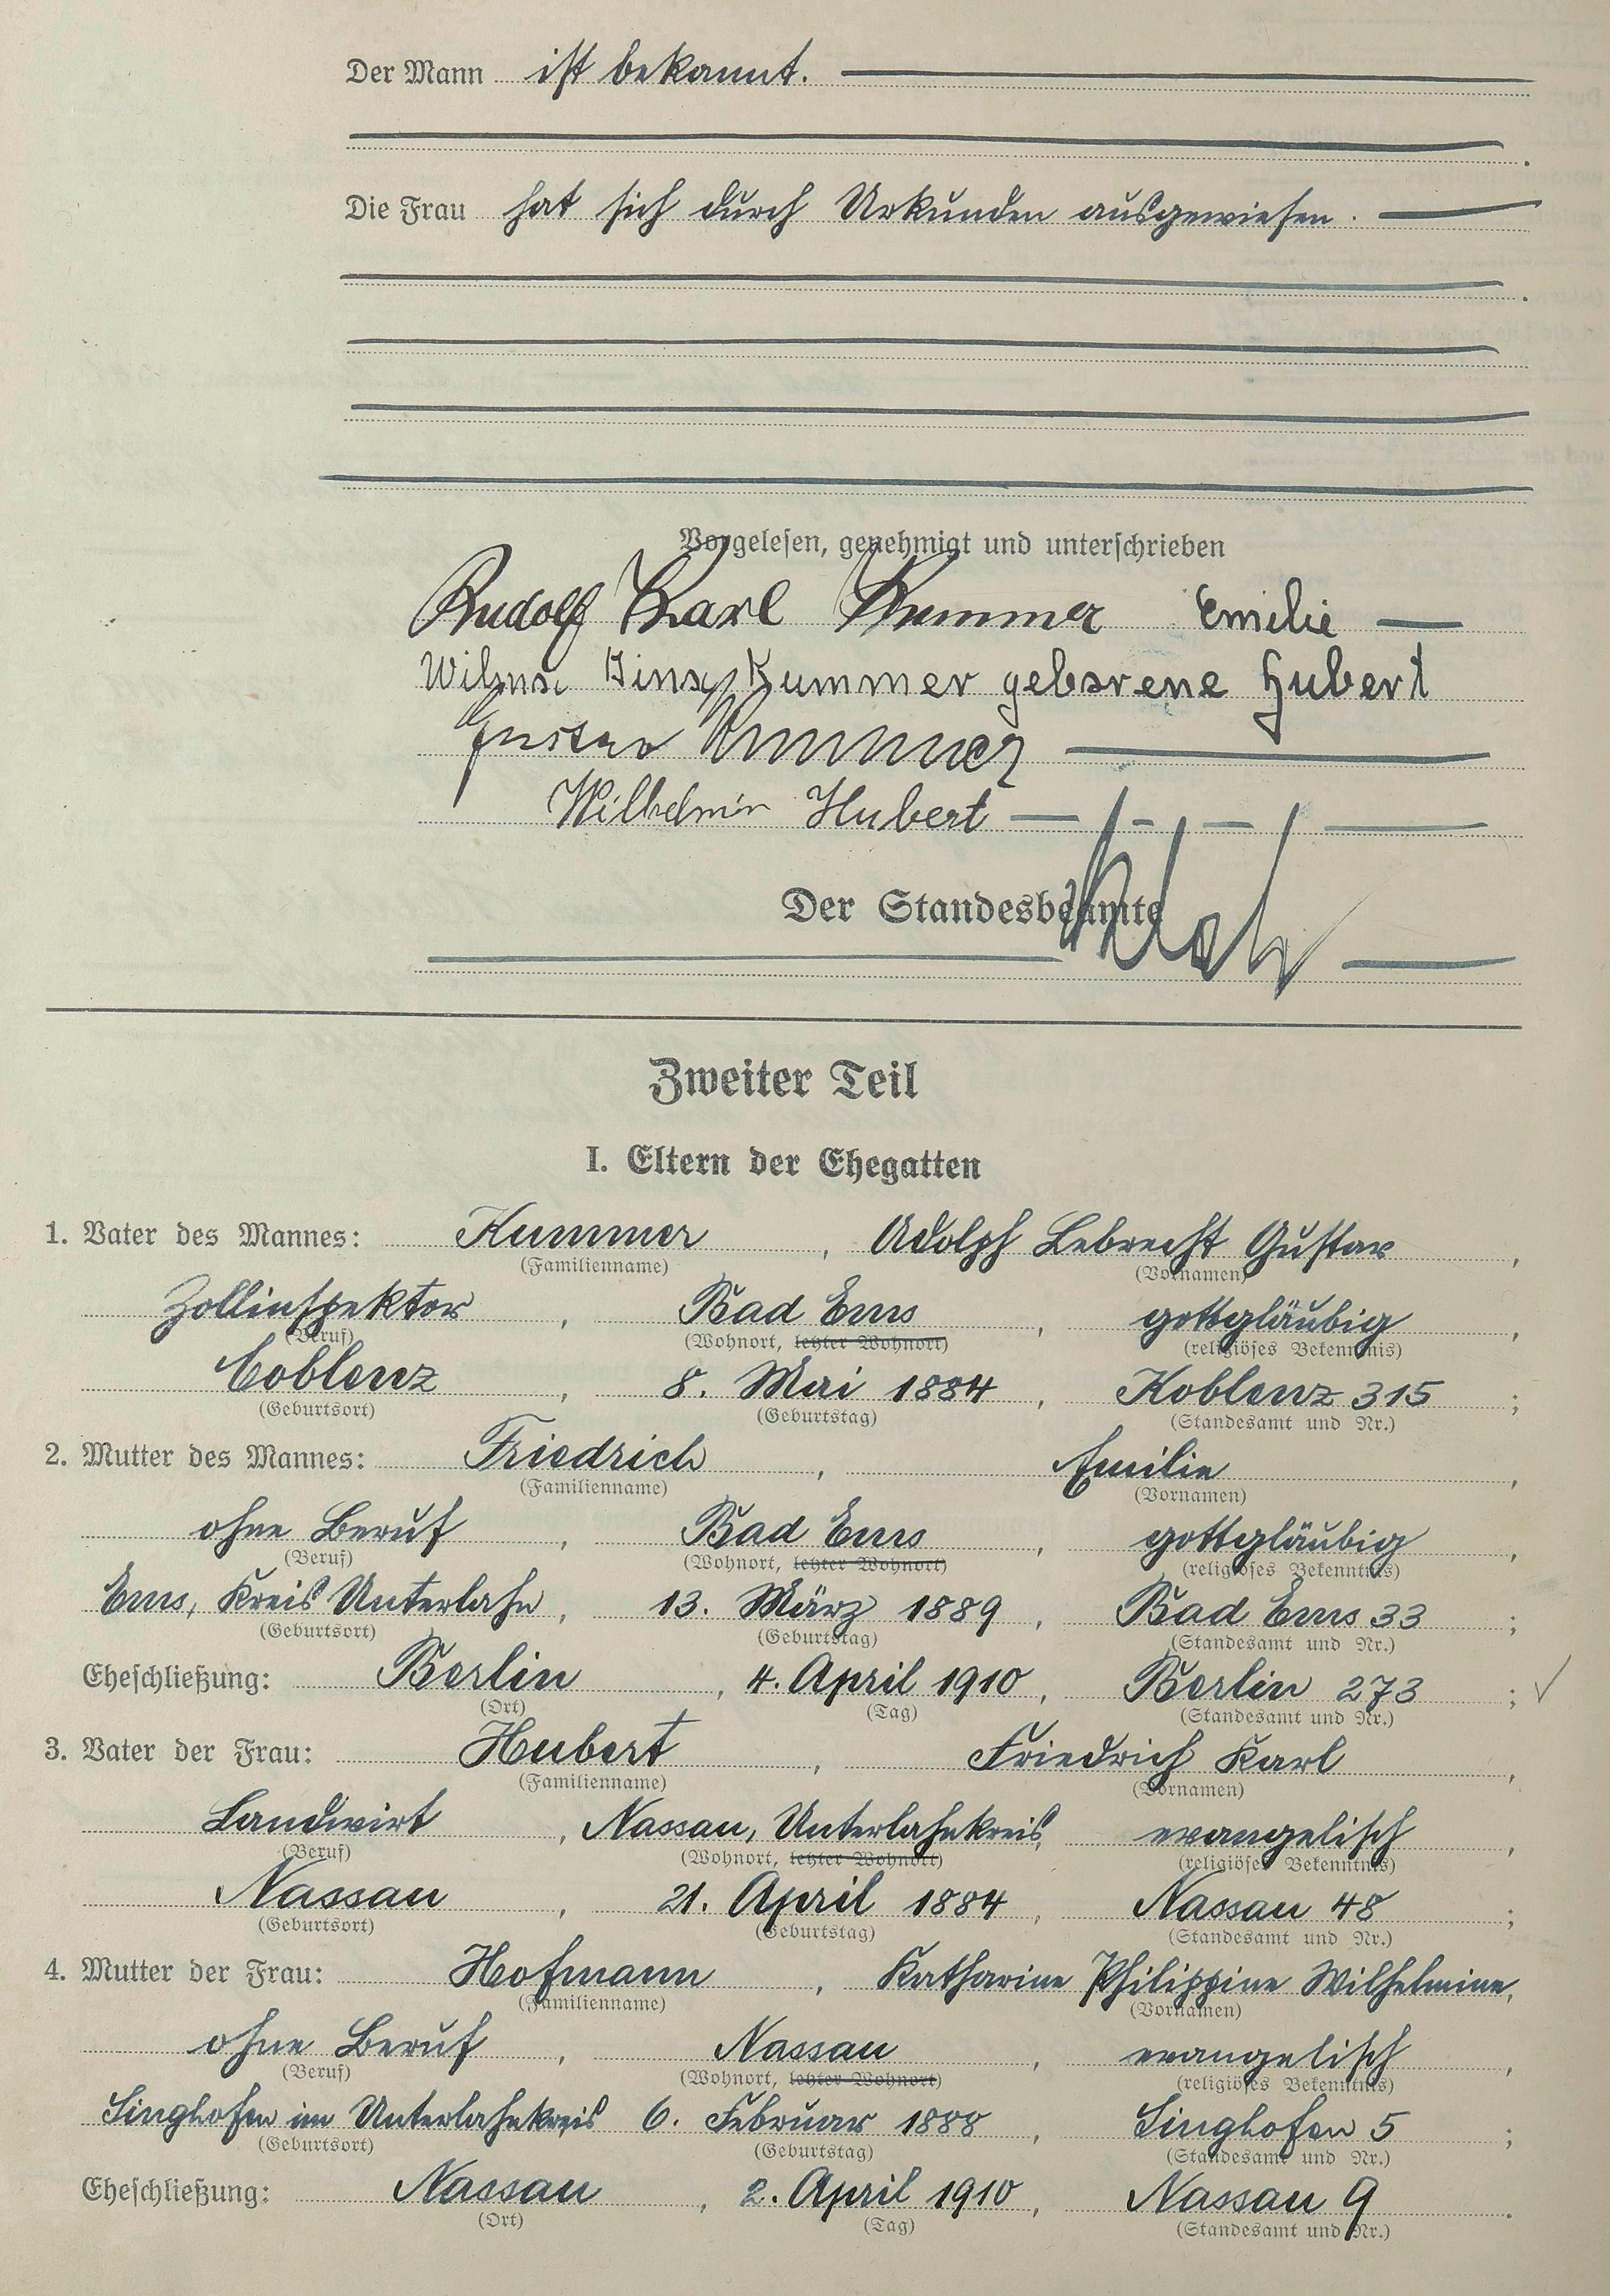 Der Mann ist bekannt.
Die Frau hat sich durch Urkunden ausgewiesen.
Vorgelesen, genehmigt und unterschrieben
Rudolf Karl Kummer Emilie
Wilma Kummer geborene Hubert
Gustav Kummer
Wilhelmin Hubert
Der Standesbeamte
Zweiter Teil
I. Eltern der Ehegatten
1. Vater des Mannes: Kummer, Adolph Lebrecht Gustav,
(Familienname) (Vornamen)
Zollinspektor, Bad Ems, gottgläubig,
(Beruf) (Wohnort, letzter Wohnort) (religiöses Bekenntnis)
Coblenz, 8. Mai 1884, Koblenz 315;
(Geburtsort) (Geburtstag) (Standesamt und Nr.)
2. Mutter des Mannes: Friedrich, Emilie,
(Familienname) (Vornamen)
ohne Beruf, Bad Ems, gottgläubig,
(Beruf) (Wohnort, letzter Wohnort) (religiöses Bekenntnis)
Ems, Kreis Unterlahn, 13. März 1889, Bad Ems 33;
(Geburtsort) (Geburtstag) (Standesamt und Nr.)
Eheschließung: Berlin, 4. April 1910, Berlin 273;
(Ort) (Tag) (Standesamt und Nr.)
3. Vater der Frau: Hubert, Friedrich Karl,
(Familienname) (Vornamen)
Landwirt, Nassau, Unterlahnkreis, evangelisch,
(Beruf) (Wohnort, letzter Wohnort) (religiöses Bekenntnis)
Nassau, 21. April 1884, Nassau 48;
(Geburtsort) (Geburtstag) (Standesamt und Nr.)
4. Mutter der Frau: Hofmann, Katharine Philippine Wilhelmine,
(Familienname) (Vornamen)
ohne Beruf, Nassau, evangelisch,
(Beruf) (Wohnort, letzter Wohnort) (religiöses Bekenntnis)
Singhofen im Unterlahnkreis 6. Februar 1888, Singhofen 5;
(Geburtsort) (Geburtstag) (Standesamt und Nr.)
Eheschließung: Nassau, 2. April 1910, Nassau 9.
(Ort) (Tag) (Standesamt und Nr.)